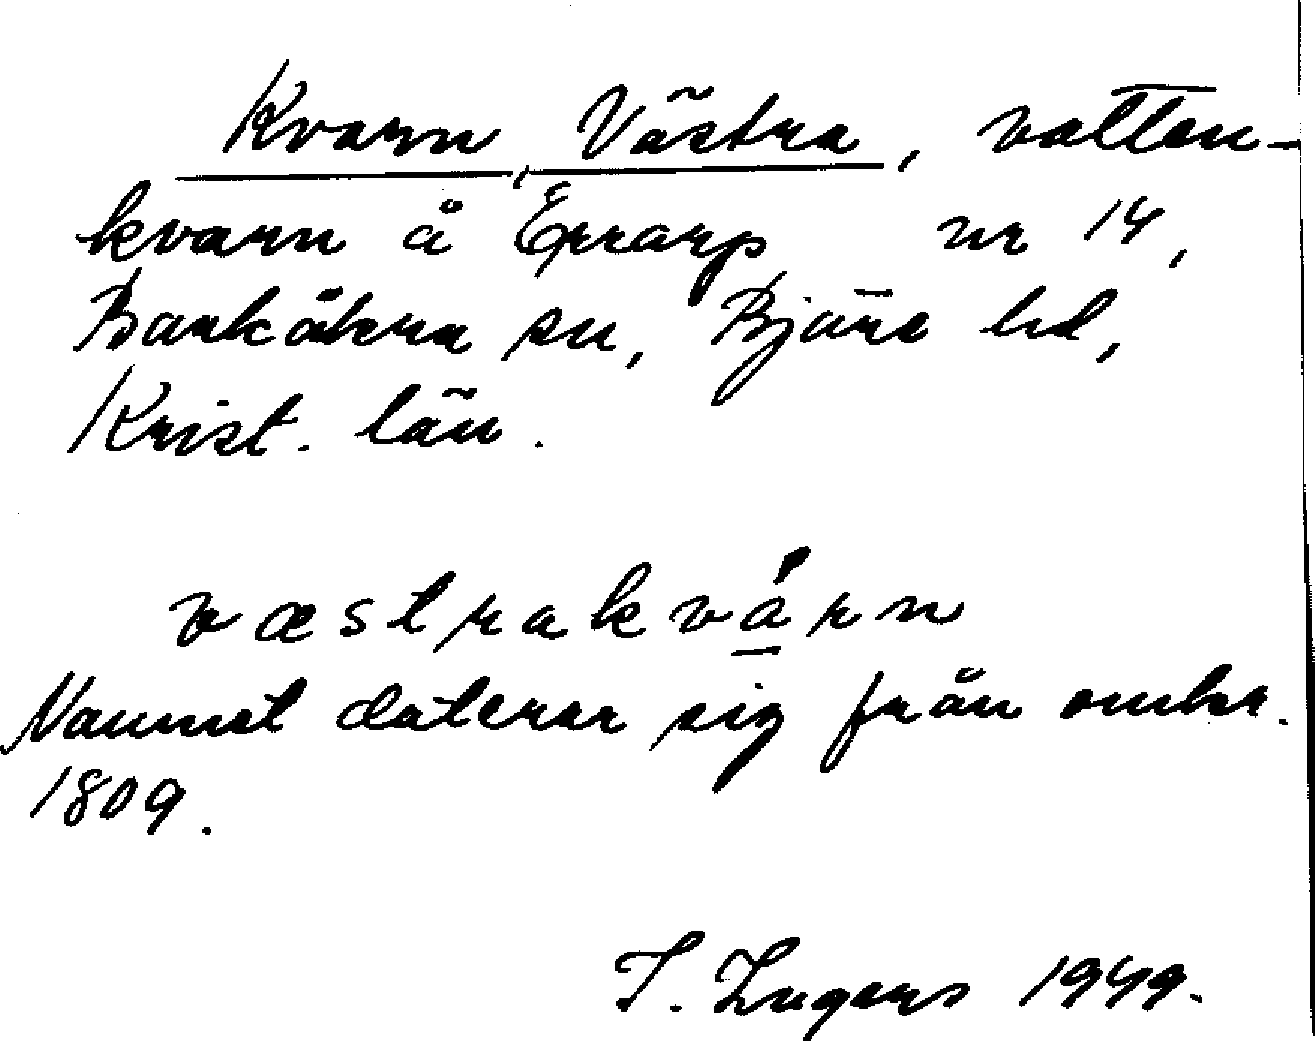 Kvarn, Västra, vatten-
kvarn å Errarp nr 14,
Barkåkra sn, Bjäre hd,
Krist. län.
væstrakvárn
Namnet daterar sig från omkr.
1809.
I. Ingers 1949.